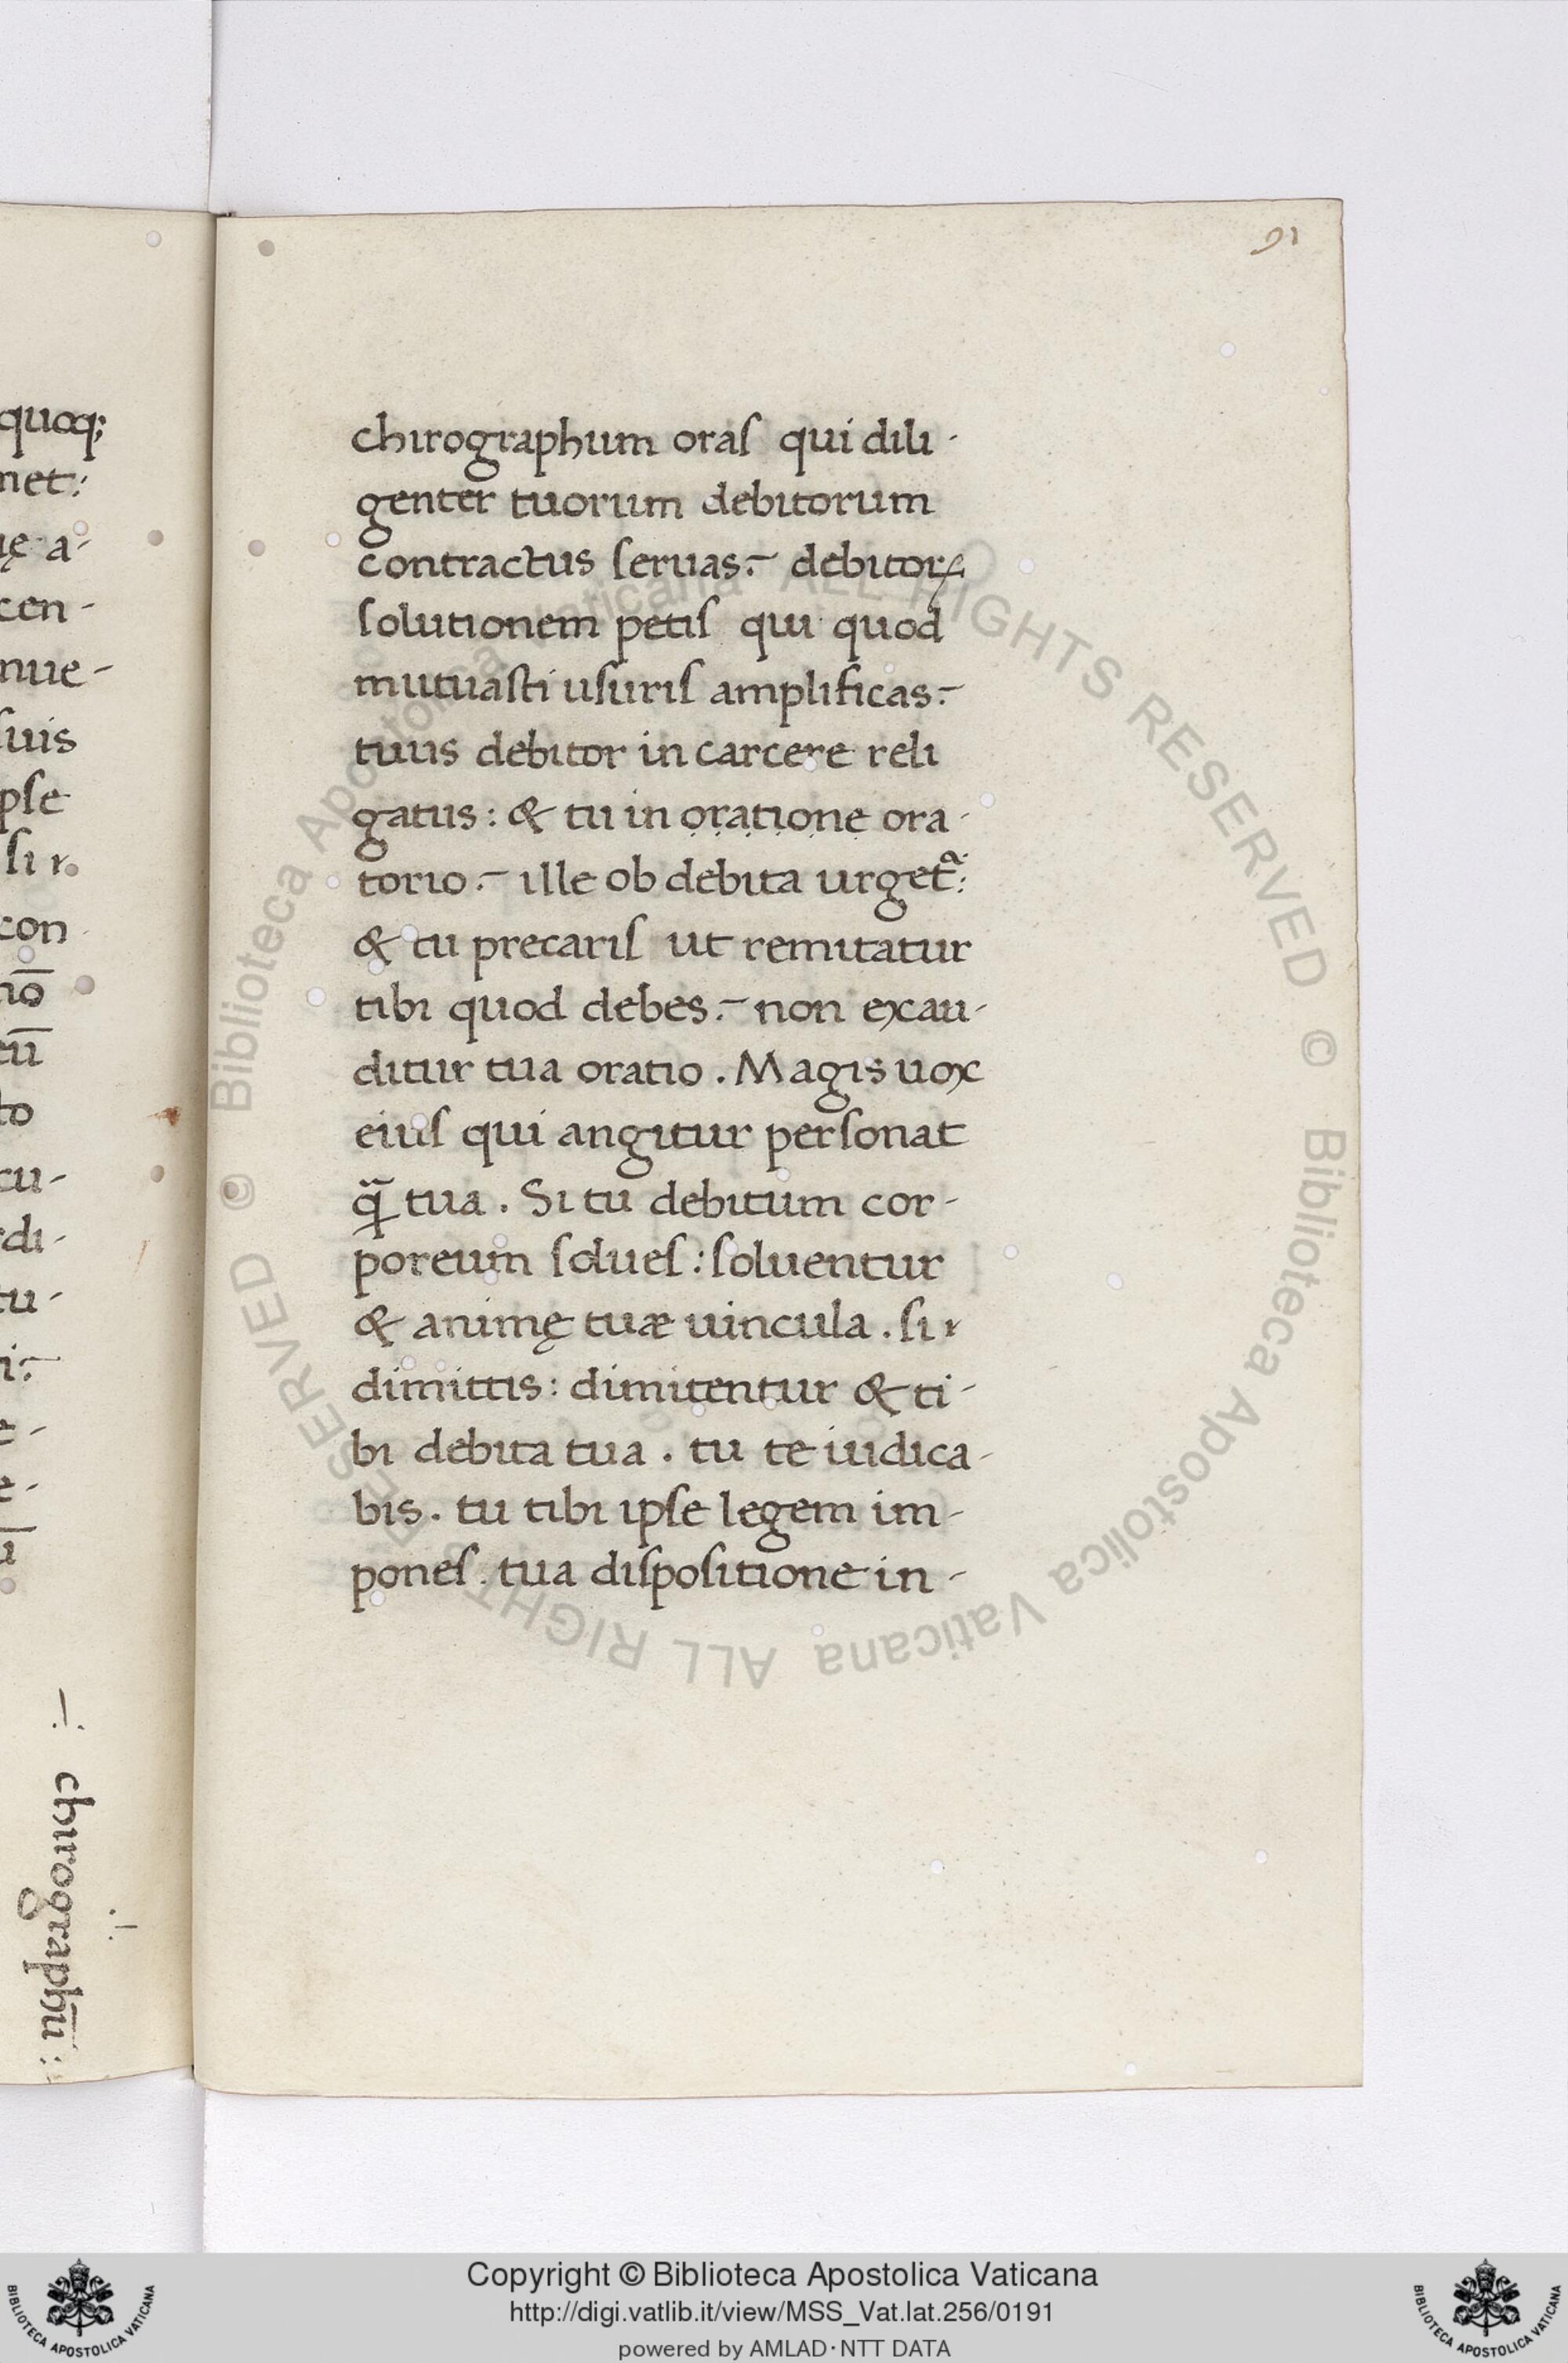 quoq;
net:
ę a-
cen-
nue-
suis
pse
si r
con
nō
tū
to
cu-
rdi-
tu-
chirographū:
91
chirographum oras qui dili-
genter tuorum debitorum
contractus seruas:- debitoꝝ
solutionem petis qui quod
mutuasti usuris amplificas:-
tuus debitor in carcere reli
gatus: & tu in ọṛạṭịọṇẹ ora-
torio:- ille ob debita urget᷑:
& tu precaris ut remitatur
tibi quod debes:- non exau-
ditur tua oratio. Magis uox
eius qui angitur personat
qᷓ tua. Si tu debitum cor-
poreum solues: soluentur
& animę tuæ uincula. si r
dimittis: dimitentur & ti-
bi debita tua. tu te iudica-
bis. tu tibi ipse legem im-
pones. tua dispositione in-
© Biblioteca Apostolica Vaticana ALL RIGHTS RESERVED © Biblioteca Apostolica Vaticana ALL RIGHTS RESERVED
BIBLIOTECA APOSTOLICA VATICANA
Copyright © Biblioteca Apostolica Vaticana
http://digi.vatlib.it/view/MSS_Vat.lat.256/0191
powered by AMLAD·NTT DATA
BIBLIOTECA APOSTOLICA VATICANA